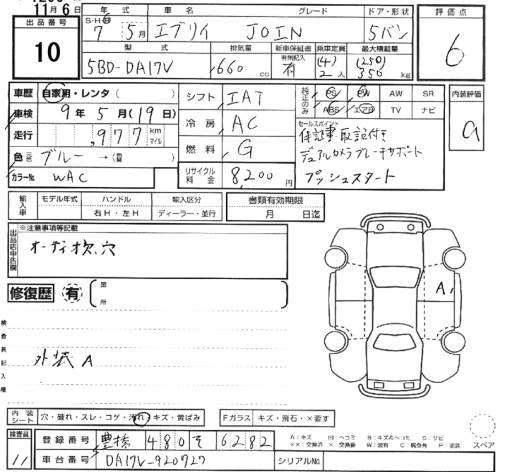 11月6日
出品番号
10
年式 車名 グレード ドア・形状
S・H・R 7年5月 エブリイ JOIN 5バン
型式 排気量 新車保証書 乗車定員 最大積載量
有無記入
5BD-DA17V 660cc 有 (4)2人 (250)350kg
評価点
6
車歴 自家用・レンタ( )
車検 9年5月(19日)
走行 977km マイル
色 ブルー→( )
カラーNo. WAC
シフト IAT
冷房 AC
燃料 G
リサイクル料金 8,200円
純正のみ PS PW AW SR
ABS エアB TV ナビ
セールスポイント
保証書取説付き
デュアルカメラブレーキサポート
プッシュスタート
内装評価
a
輸入車 モデル年式 ハンドル 輸入区分
右H・左H ディーラー・並行
書類有効期限
月 日迄
出品店申告欄
※注意事項等記載
オーディオ欠.穴
修復歴 有 箇所
検査員記入欄
外装 A
A
内装シート 穴・破れ・スレ・コゲ・汚れ・キズ・黄ばみ
Fガラス キズ・飛石・×要す
スペア
検査員
11
登録番号 豊橋 480 そ 6282
車台番号 DA17V-920727
シリアルNo.